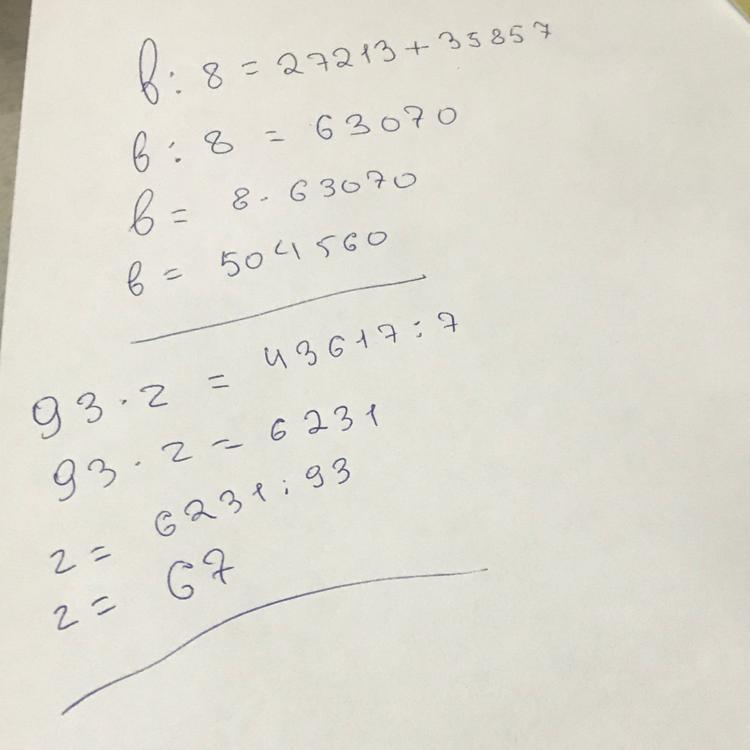 в : 8 = 27213 + 35857
в : 8 = 63070
в = 8 · 63070
в = 504560
93 · z = 43617 : 7
93 · z = 6231
z = 6231 : 93
z = 67